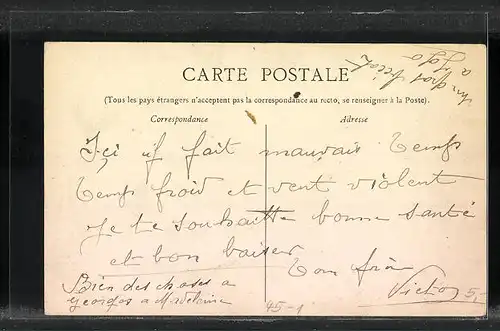 Un gros bécot
a Lolo
CARTE POSTALE
(Tous les pays étrangers n'acceptent pas la correspondance au recto, se renseigner à la Poste).
Correspondance Adresse
Içi il fait mauvais temps
temps froid et vent violent
Je te souhaitte bonne santé
et bon baiser
ton frère
Bien des choses a
Georges a Madeleine
Victor
5,-
45-1